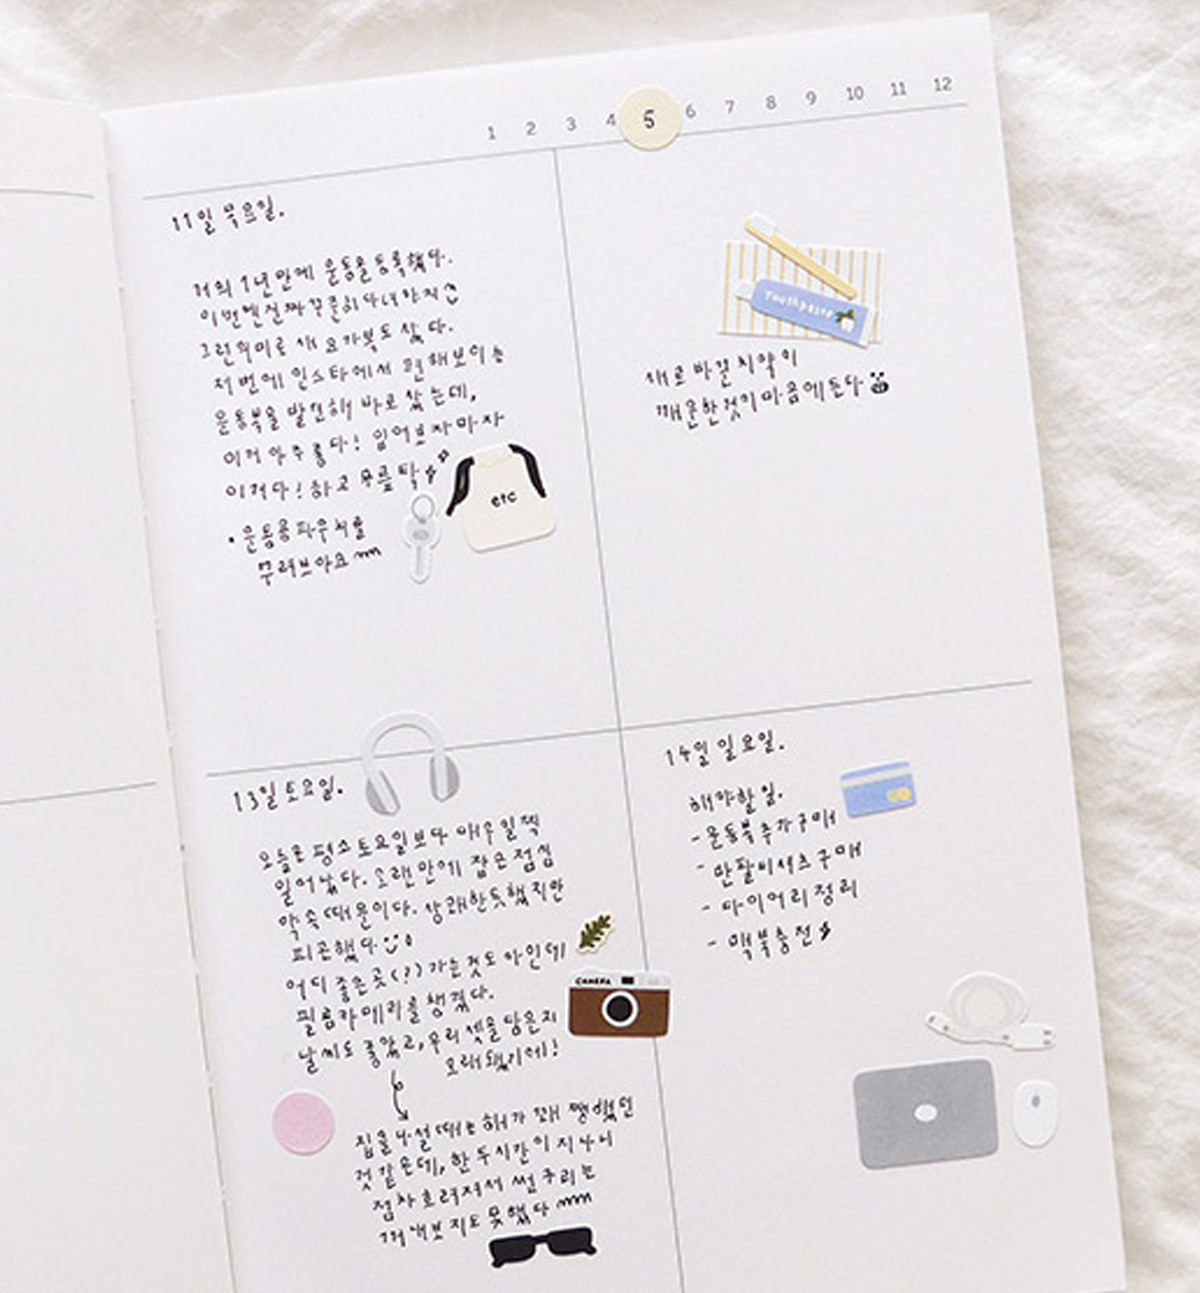 1 2 3 4 5 6 7 8 9 10 11 12
11일 목요일.
거의 1년만에 운동을 등록했다.
이번엔 진짜 꾸준히 다녀야지
그런 의미로 새 요가복도 샀다.
저번에 인스타에서 편해보이는
운동복을 발견해 바로 샀는데,
이거 아주 좋다! 입어보자마자
이거다! 하고 무릎 탁
• 운동용 파우치를
꾸려보아요
etc
Toothpaste
새로 바꾼 치약이
깨끗한 것이 마음에 든다
13일 토요일.
오늘은 평소 토요일보다 매우 일찍
일어났다. 오랜만에 잡은 점심
약속 때문이다. 상쾌한듯했지만
피곤했다
어디 좋은 곳(?) 가는 것도 아닌데
필름카메라를 챙겼다.
날씨도 좋았고, 우리 셋을 담은지
오래됐기에!
CAMERA
집을 나설 때는 해가 꽤 쨍했던
것 같은데, 한 두시간이 지나니
점차 흐려져서 썬구리는
꺼내보지도 못했다
14일 일요일.
해야할 일.
- 운동복 추가구매
- 반팔티셔츠 구매
- 다이어리 정리
- 맥북충전